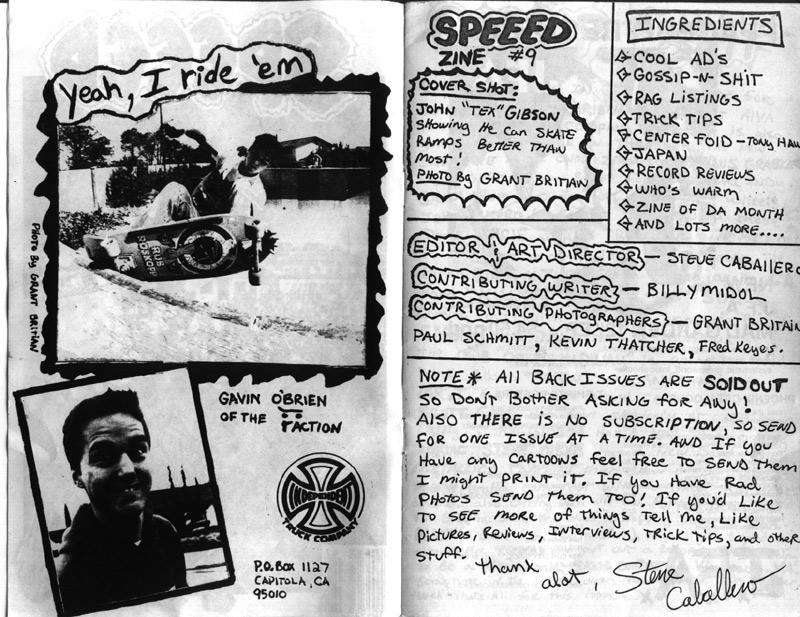 Yeah, I ride 'em
ROB
ROSKOPP
PHOTO By GRANT BRITIAN
GAVIN O'BRIEN
OF THE FACTION
INDEPENDENT
TRUCK COMPANY
P.O. BOX 1127
CAPITOLA, CA
95010
SPEEED
ZINE #9
COVER SHOT:
JOHN "TEX" GIBSON
SHOWING HE CAN SKATE
RAMPS BETTER THAN
MOST!
PHOTO By GRANT BRITIAN
INGREDIENTS
COOL AD'S
GOSSIP-N-SHIT
RAG LISTINGS
TRICK TIPS
CENTER FOLD - TONY HAW
JAPAN
RECORD REVIEWS
WHO'S WARM
ZINE OF DA MONTH
AND LOTS MORE....
EDITOR & ART DIRECTOR - STEVE CABALLERO
CONTRIBUTING WRITER - BILLY MIDOL
CONTRIBUTING PHOTOGRAPHERS - GRANT BRITAIN
PAUL SCHMITT, KEVIN THATCHER, FRED KEYES.
NOTE* All BACK ISSUES ARE SOLD OUT
SO DON'T BOTHER ASKING FOR ANY!
ALSO THERE IS NO SUBSCRIPTION, SO SEND
FOR ONE ISSUE AT A TIME. AND If you
Have any CARTOONS feel free TO SEND Them
I might PRINT IT. If you Have Rad
PHOTOS SEND them TOO! If you'd Like
TO SEE more of things Tell me, Like
Pictures, Reviews, Interviews, Trick tips, and other
stuff.
Thank alot, Steve
Caballero